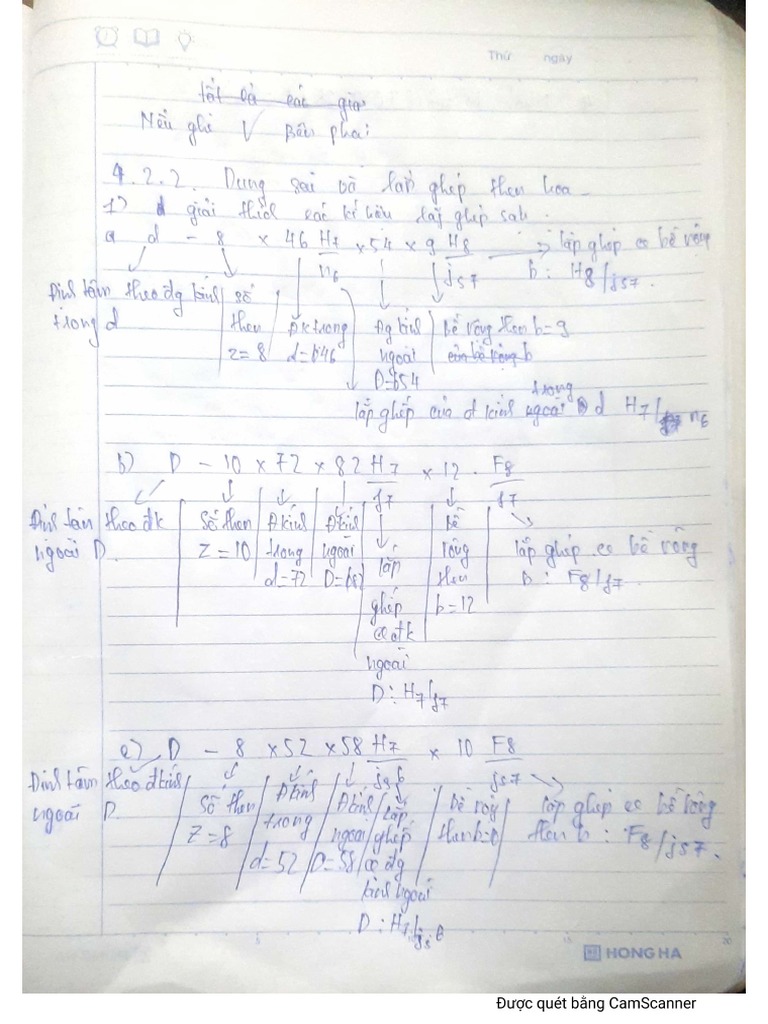 Thứ ngày
tất cả các gia
Nếu ghi V Bên phải
4.2.2. Dung sai và lắp ghép then hoa
1) giải thích các kí hiệu lắp ghép sau.
a d - 8 × 46 H7/n6 × 54 × 9 H8/js7 → lắp ghép có bề rộng
b: H8/js7.
Định tâm theo đg kính trong d
số then z = 8
Đk trong d = 46
Đg kính ngoài D = 54
Bề rộng then b = 9
của bề rộng b
lắp ghép của đ kính ngoài trong d H7/n6
b) D - 10 × 72 × 82 H7/f7 × 12 . F8/f7
Định tâm theo đk ngoài D.
Số then Z = 10
Đkính trong d = 72
Đkính ngoài D = 82
lắp ghép có đk ngoài D: H7/f7
bề rộng then b = 12
lắp ghép có bề rộng B: F8/f7
c) D - 8 × 52 × 58 H7/js6 × 10 F8/js7
Định tâm theo đkính ngoài D.
Số then Z = 8
Đkính trong d = 52
Đkính ngoài D = 58
lắp ghép có đg kính ngoài D: H7/js6
bề rộng then b
lắp ghép có bề rộng then b: F8/js7.
5 15 20
HONG HA
Được quét bằng CamScanner